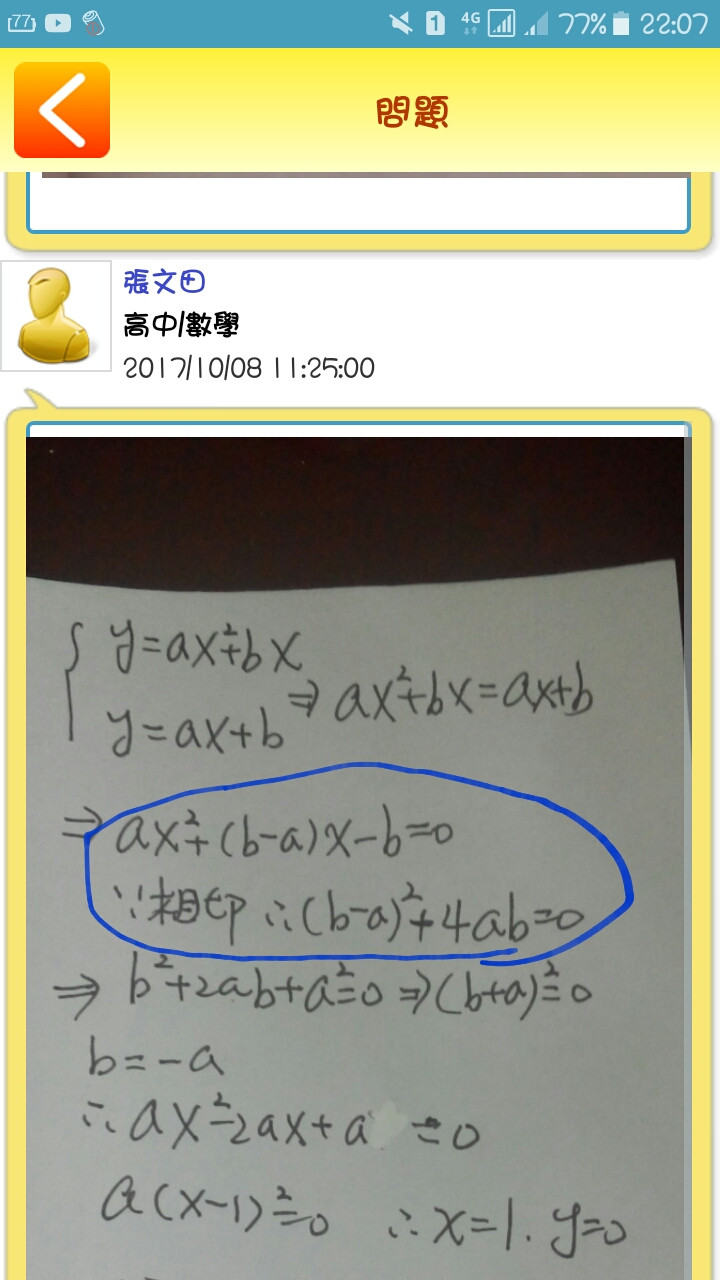 77
1 4G 77% 22:07
問題
張文田
高中/數學
2017/10/08 11:25:00
{ y=ax²+bx
y=ax+b ⇒ ax²+bx=ax+b
⇒ ax²+(b-a)x-b=0
∵相切 ∴(b-a)²+4ab=0
⇒ b²+2ab+a²=0 ⇒(b+a)²=0
b=-a
∴ax²-2ax+a =0
a(x-1)²=0 ∴x=1. y=0